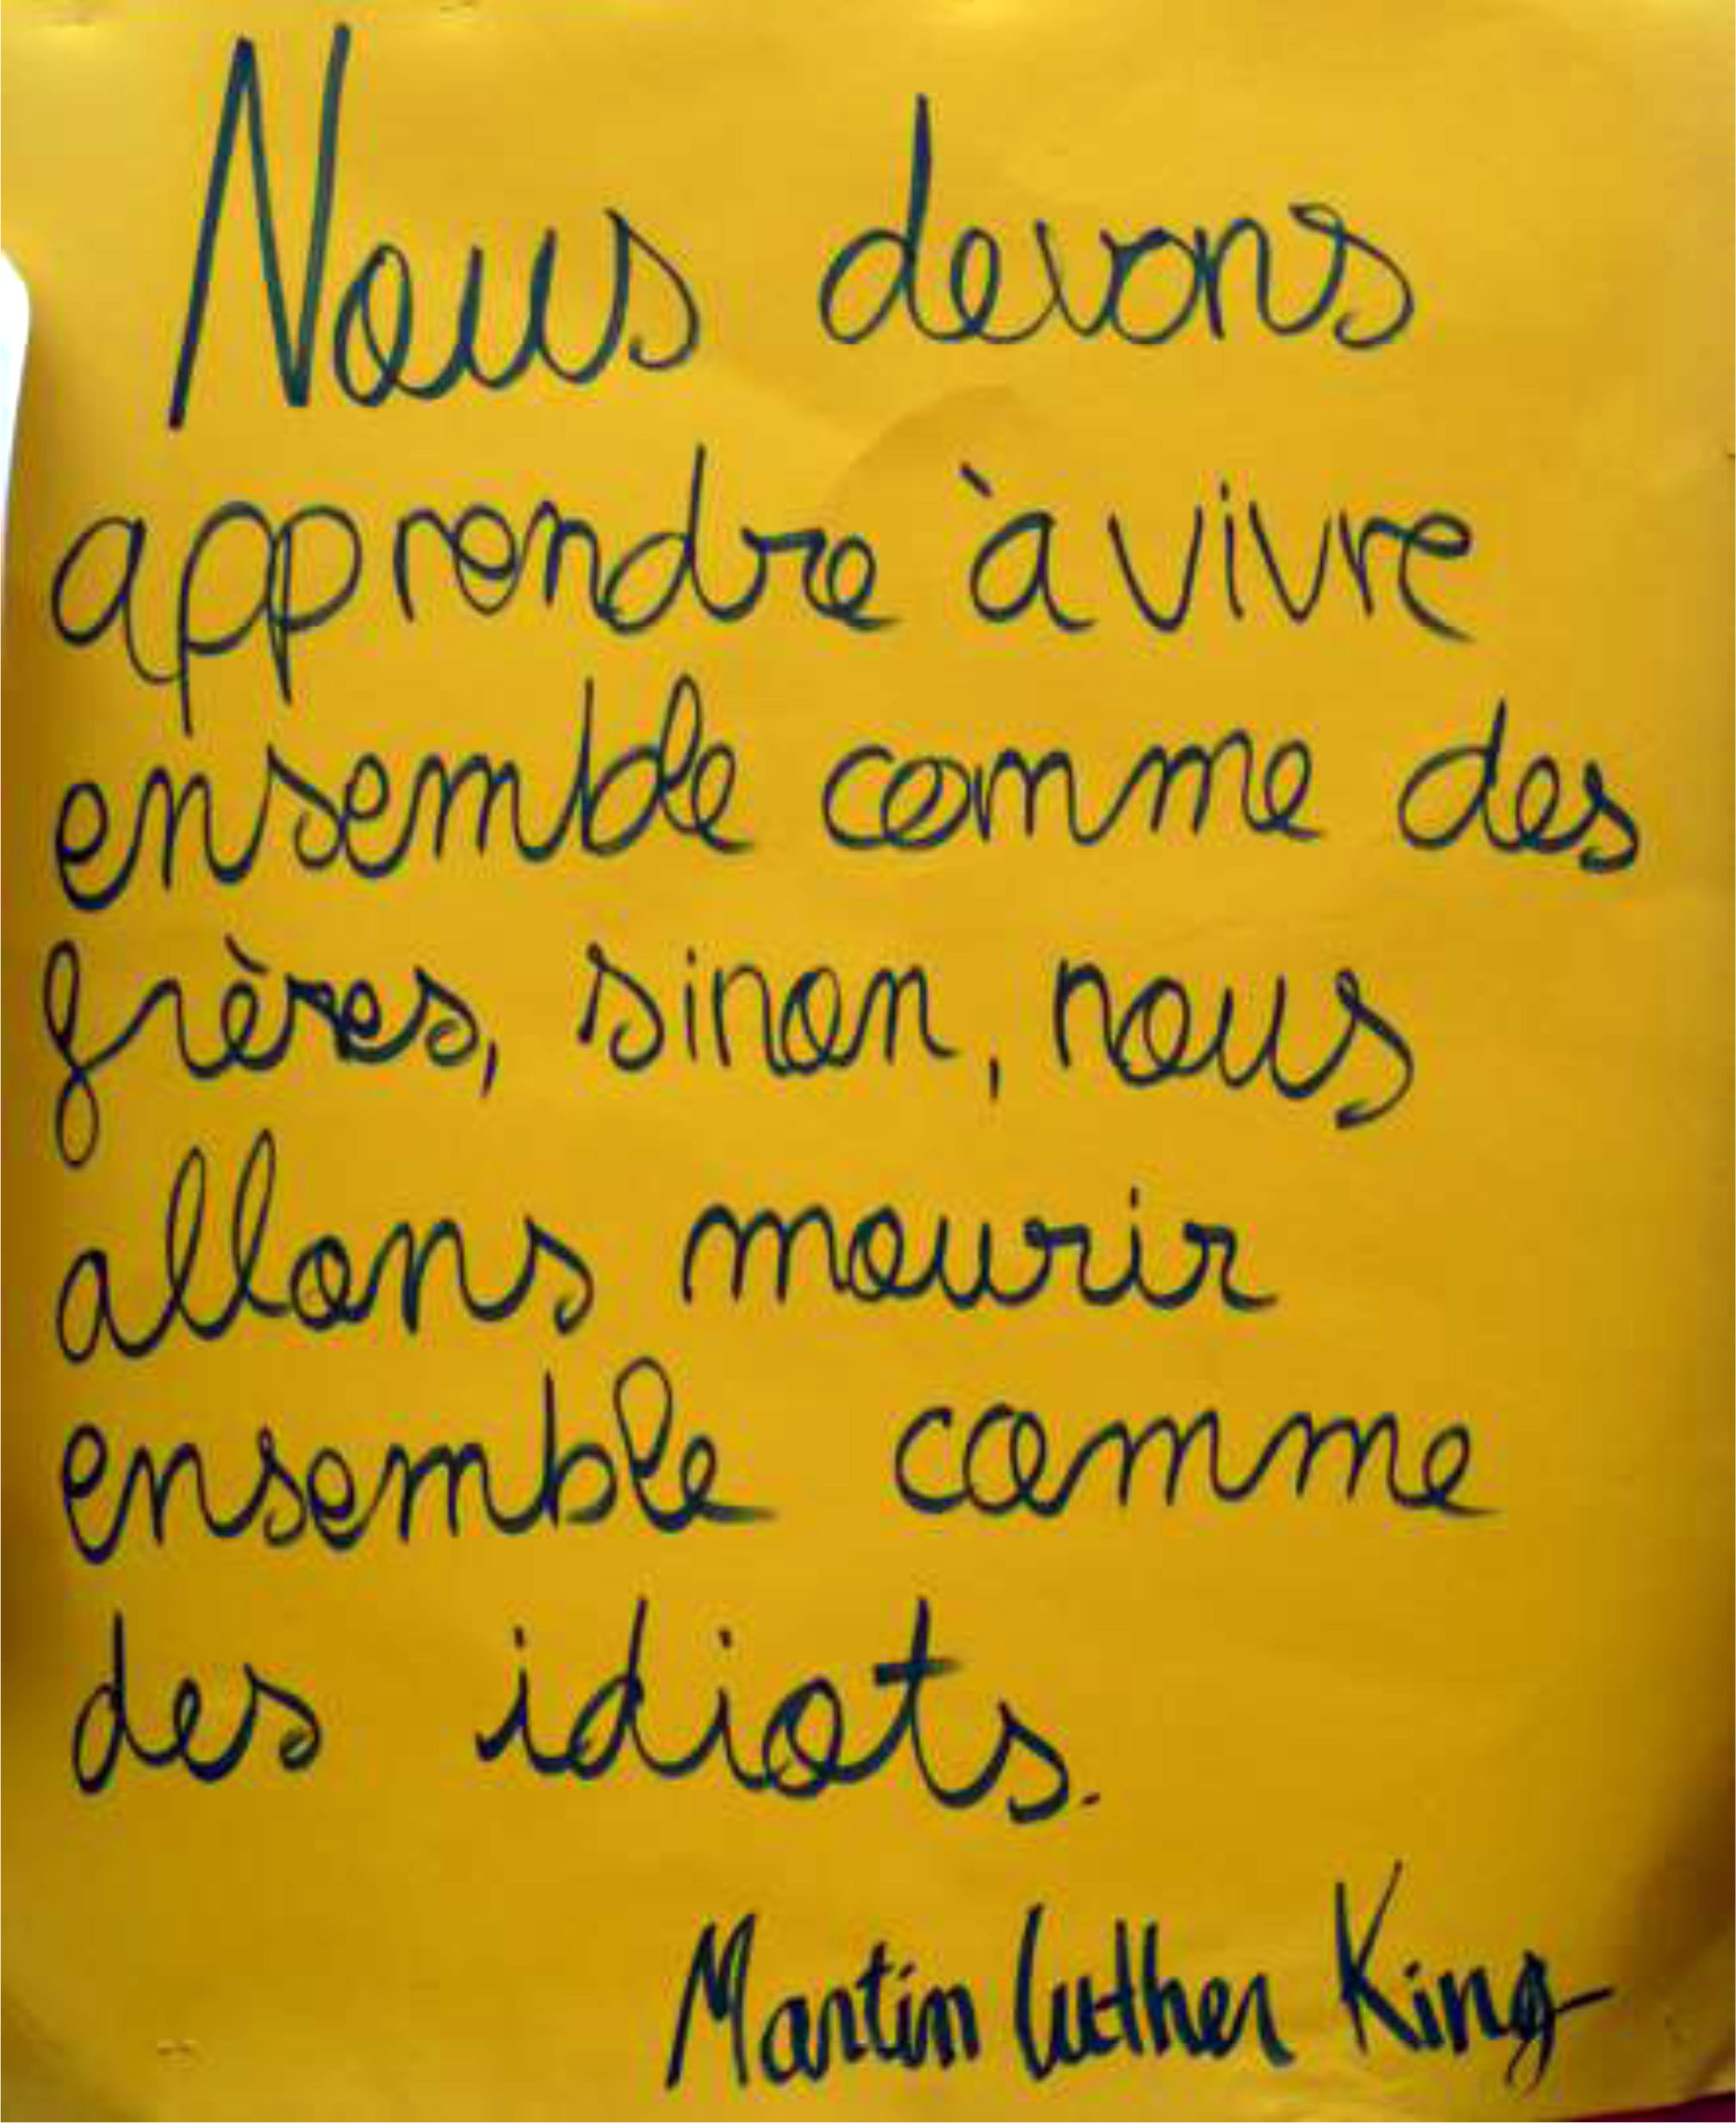 Nous devons
apprendre à vivre
ensemble comme des
frères, sinon, nous
allons mourir
ensemble comme
des idiots.
Martin Luther King